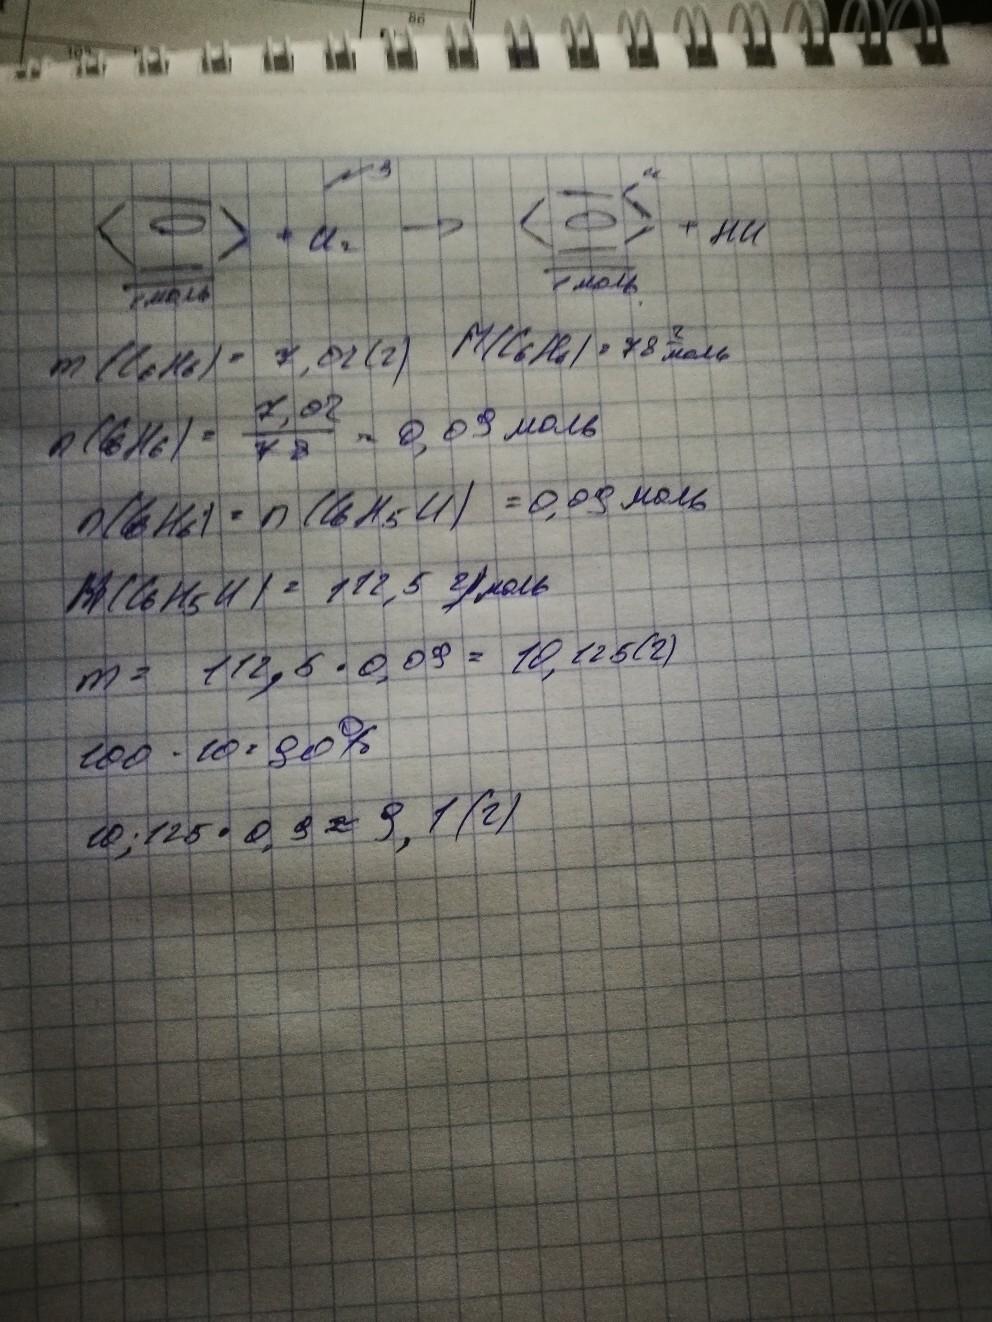 86
+ Cl₂ → Cl + HCl
1 моль 1 моль
m(C₆H₆) = 7,02(г) M(C₆H₆) = 78 г/моль
n(C₆H₆) = 7,02/78 = 0,09 моль
n(C₆H₆) = n(C₆H₅Cl) = 0,09 моль
M(C₆H₅Cl) = 112,5 г/моль
m = 112,5 · 0,09 = 10,125(г)
100 - 10 = 90%
10,125 · 0,9 ≈ 9,1(г)